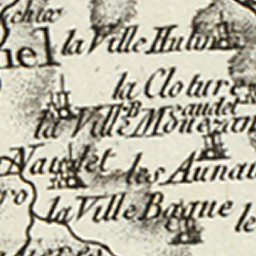 la Ville Hulin
la Cloture
Beaudet
la Ville Mouezan
Naudet
les Aunau
la Ville Bague
le